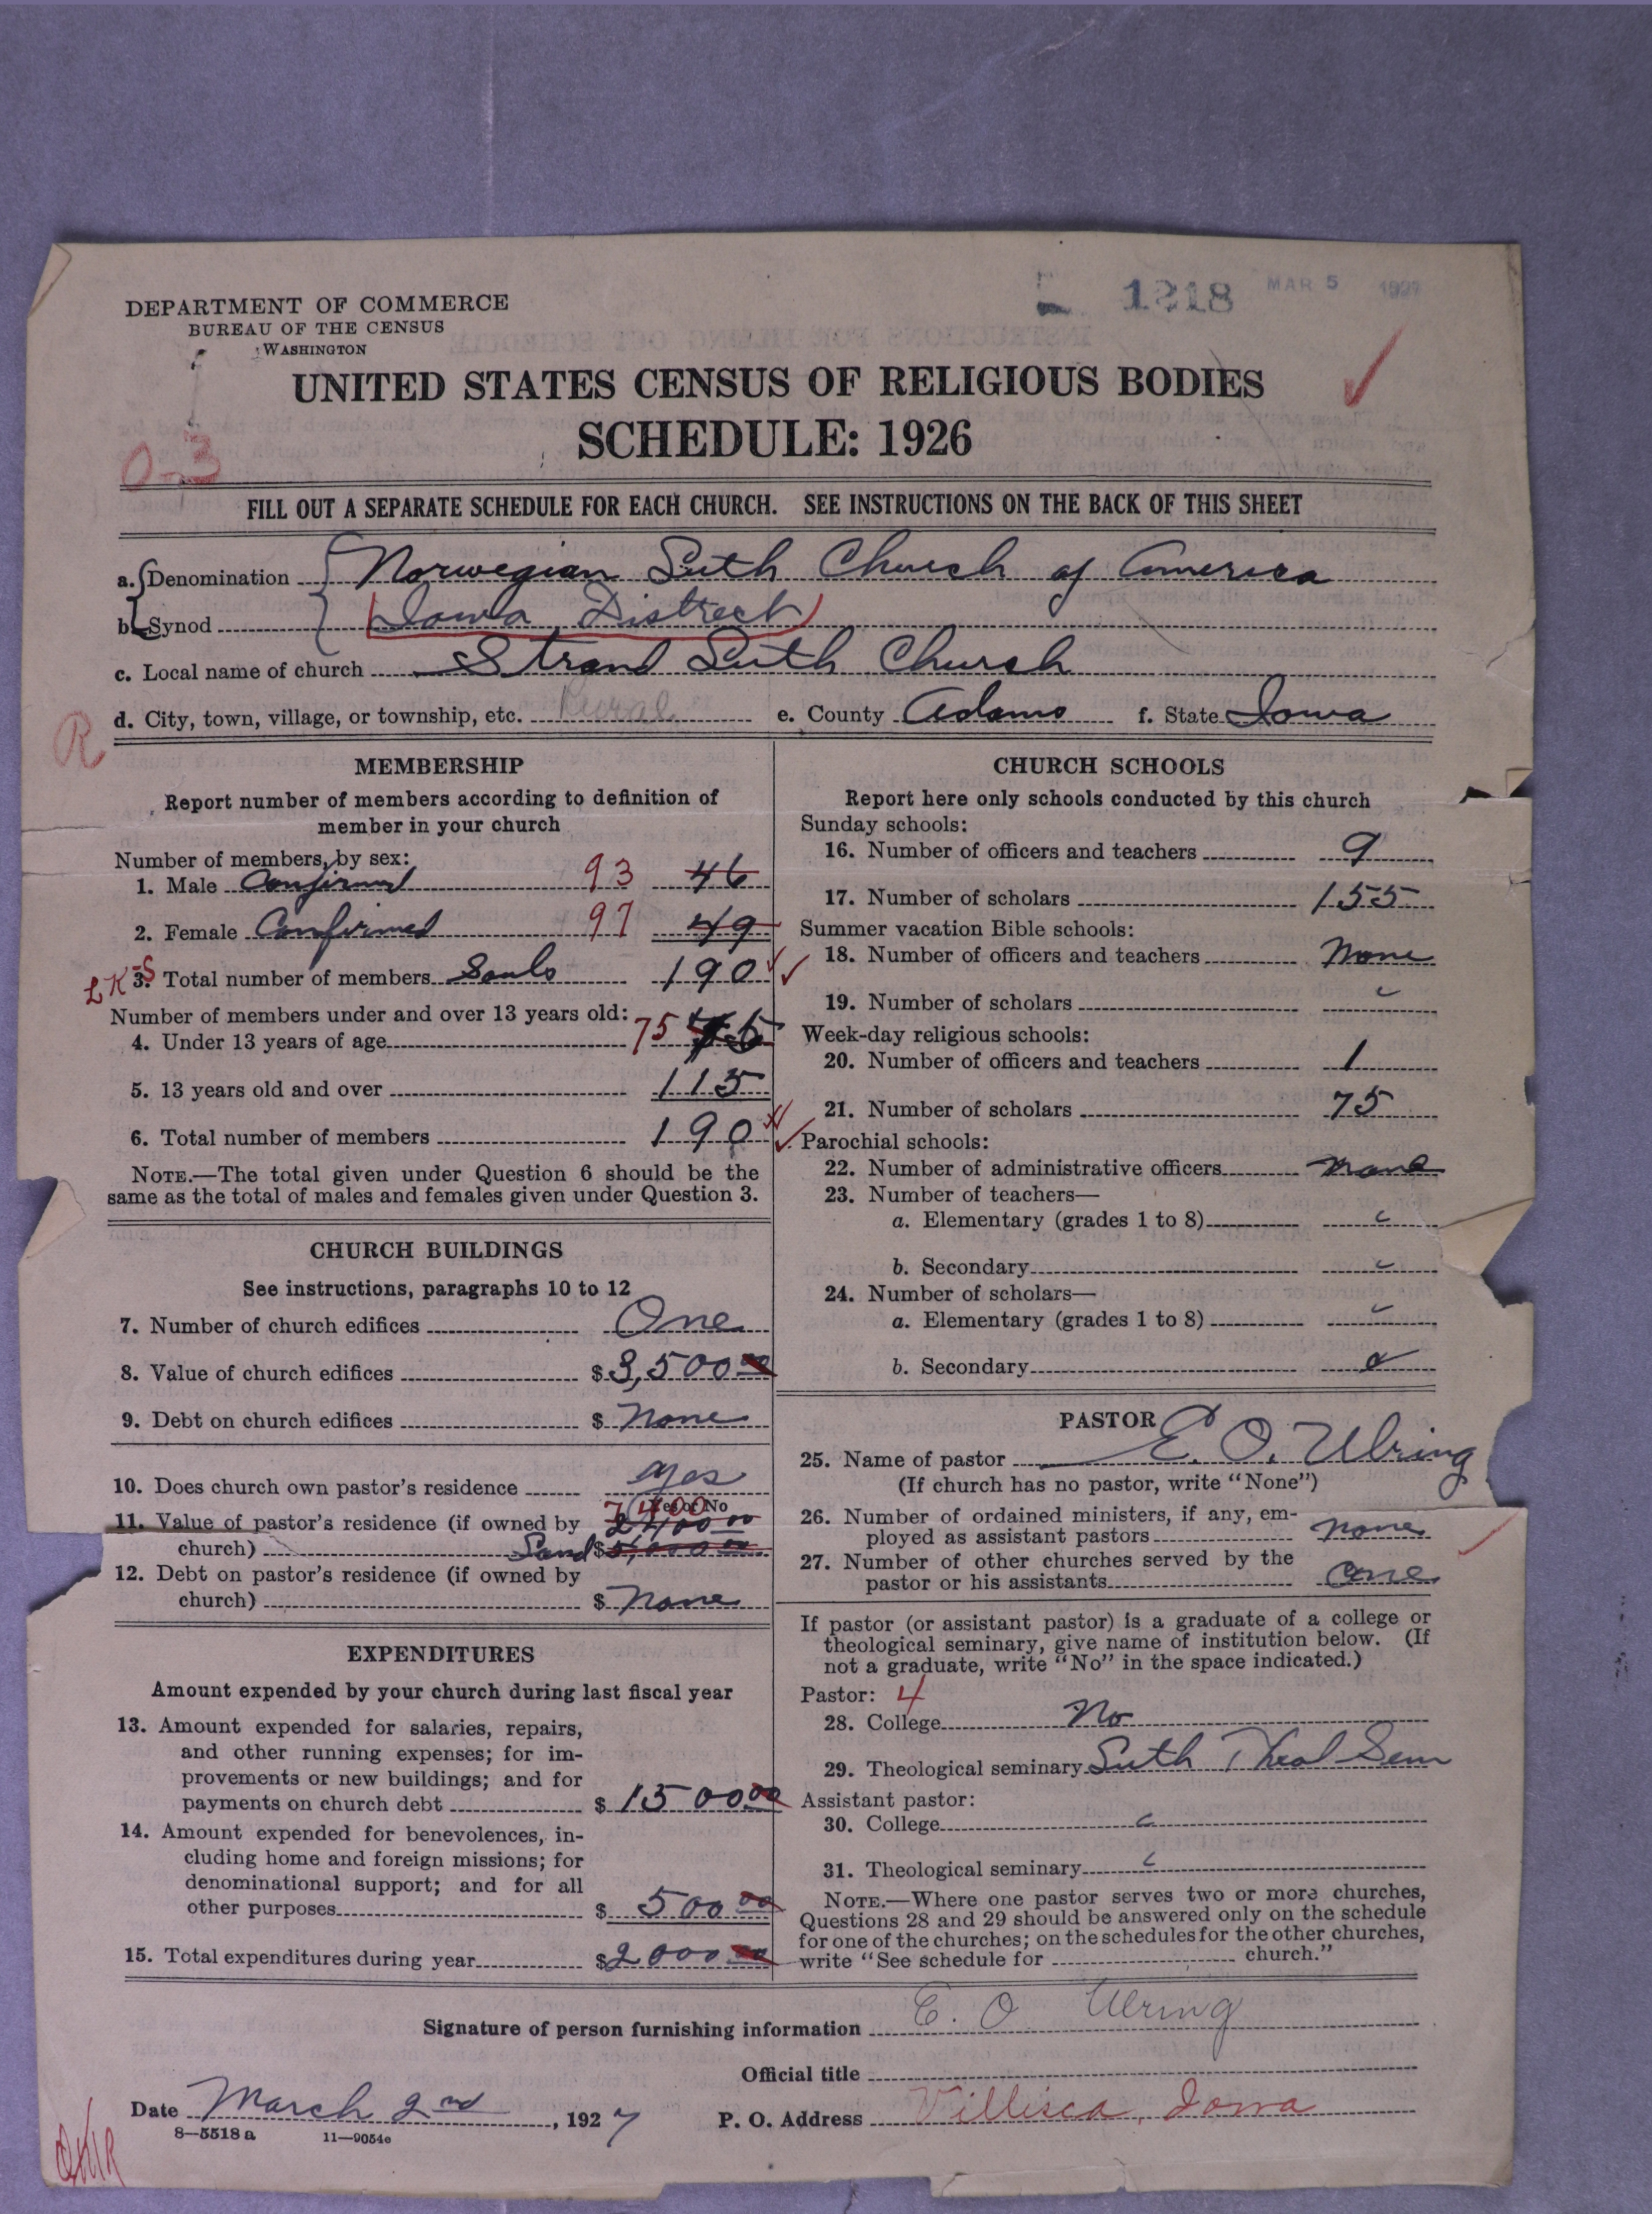 1218 MAR 5 1927
DEPARTMENT OF COMMERCE
BUREAU OF THE CENSUS
WASHINGTON
UNITED STATES CENSUS OF RELIGIOUS BODIES
SCHEDULE: 1926
0-3
FILL OUT A SEPARATE SCHEDULE FOR EACH CHURCH. SEE INSTRUCTIONS ON THE BACK OF THIS SHEET
a. Denomination Norwegian Luth Church of America
b. Synod Iowa District
c. Local name of church Strand Luth Church
d. City, town, village, or township, etc. Rural e. County Adams f. State Iowa
R
MEMBERSHIP
Report number of members according to definition of
member in your church
Number of members, by sex:
1. Male Confirmed 93 46
2. Female Confirmed 97 49
3. Total number of members Souls 190
Number of members under and over 13 years old:
4. Under 13 years of age 75
5. 13 years old and over 115
6. Total number of members 190
NOTE.—The total given under Question 6 should be the
same as the total of males and females given under Question 3.
CHURCH BUILDINGS
See instructions, paragraphs 10 to 12
7. Number of church edifices One
8. Value of church edifices $3,500 00
9. Debt on church edifices $ None
10. Does church own pastor's residence yes
Yes or No
7400
11. Value of pastor's residence (if owned by 2400 00
church) Land $5,000 00
12. Debt on pastor's residence (if owned by
church) $ None
EXPENDITURES
Amount expended by your church during last fiscal year
13. Amount expended for salaries, repairs,
and other running expenses; for im-
provements or new buildings; and for
payments on church debt $ 1500 00
14. Amount expended for benevolences, in-
cluding home and foreign missions; for
denominational support; and for all
other purposes $ 500 00
15. Total expenditures during year $2000 00
CHURCH SCHOOLS
Report here only schools conducted by this church
Sunday schools:
16. Number of officers and teachers 9
17. Number of scholars 155
Summer vacation Bible schools:
18. Number of officers and teachers None
19. Number of scholars
Week-day religious schools:
20. Number of officers and teachers 1
21. Number of scholars 75
Parochial schools:
22. Number of administrative officers None
23. Number of teachers—
a. Elementary (grades 1 to 8)
b. Secondary
24. Number of scholars—
a. Elementary (grades 1 to 8)
b. Secondary
PASTOR
25. Name of pastor E. O. Ulring
(If church has no pastor, write "None")
26. Number of ordained ministers, if any, em-
ployed as assistant pastors none
27. Number of other churches served by the
pastor or his assistants one
If pastor (or assistant pastor) is a graduate of a college or
theological seminary, give name of institution below. (If
not a graduate, write "No" in the space indicated.)
Pastor: 4
28. College No
29. Theological seminary Luth Theol Sem
Assistant pastor:
30. College
31. Theological seminary
NOTE.—Where one pastor serves two or more churches,
Questions 28 and 29 should be answered only on the schedule
for one of the churches; on the schedules for the other churches,
write "See schedule for church."
Signature of person furnishing information E. O. Ulring
Official title
Date March 2nd, 1927 P. O. Address Villisca, Iowa
8—5518 a 11—9054c